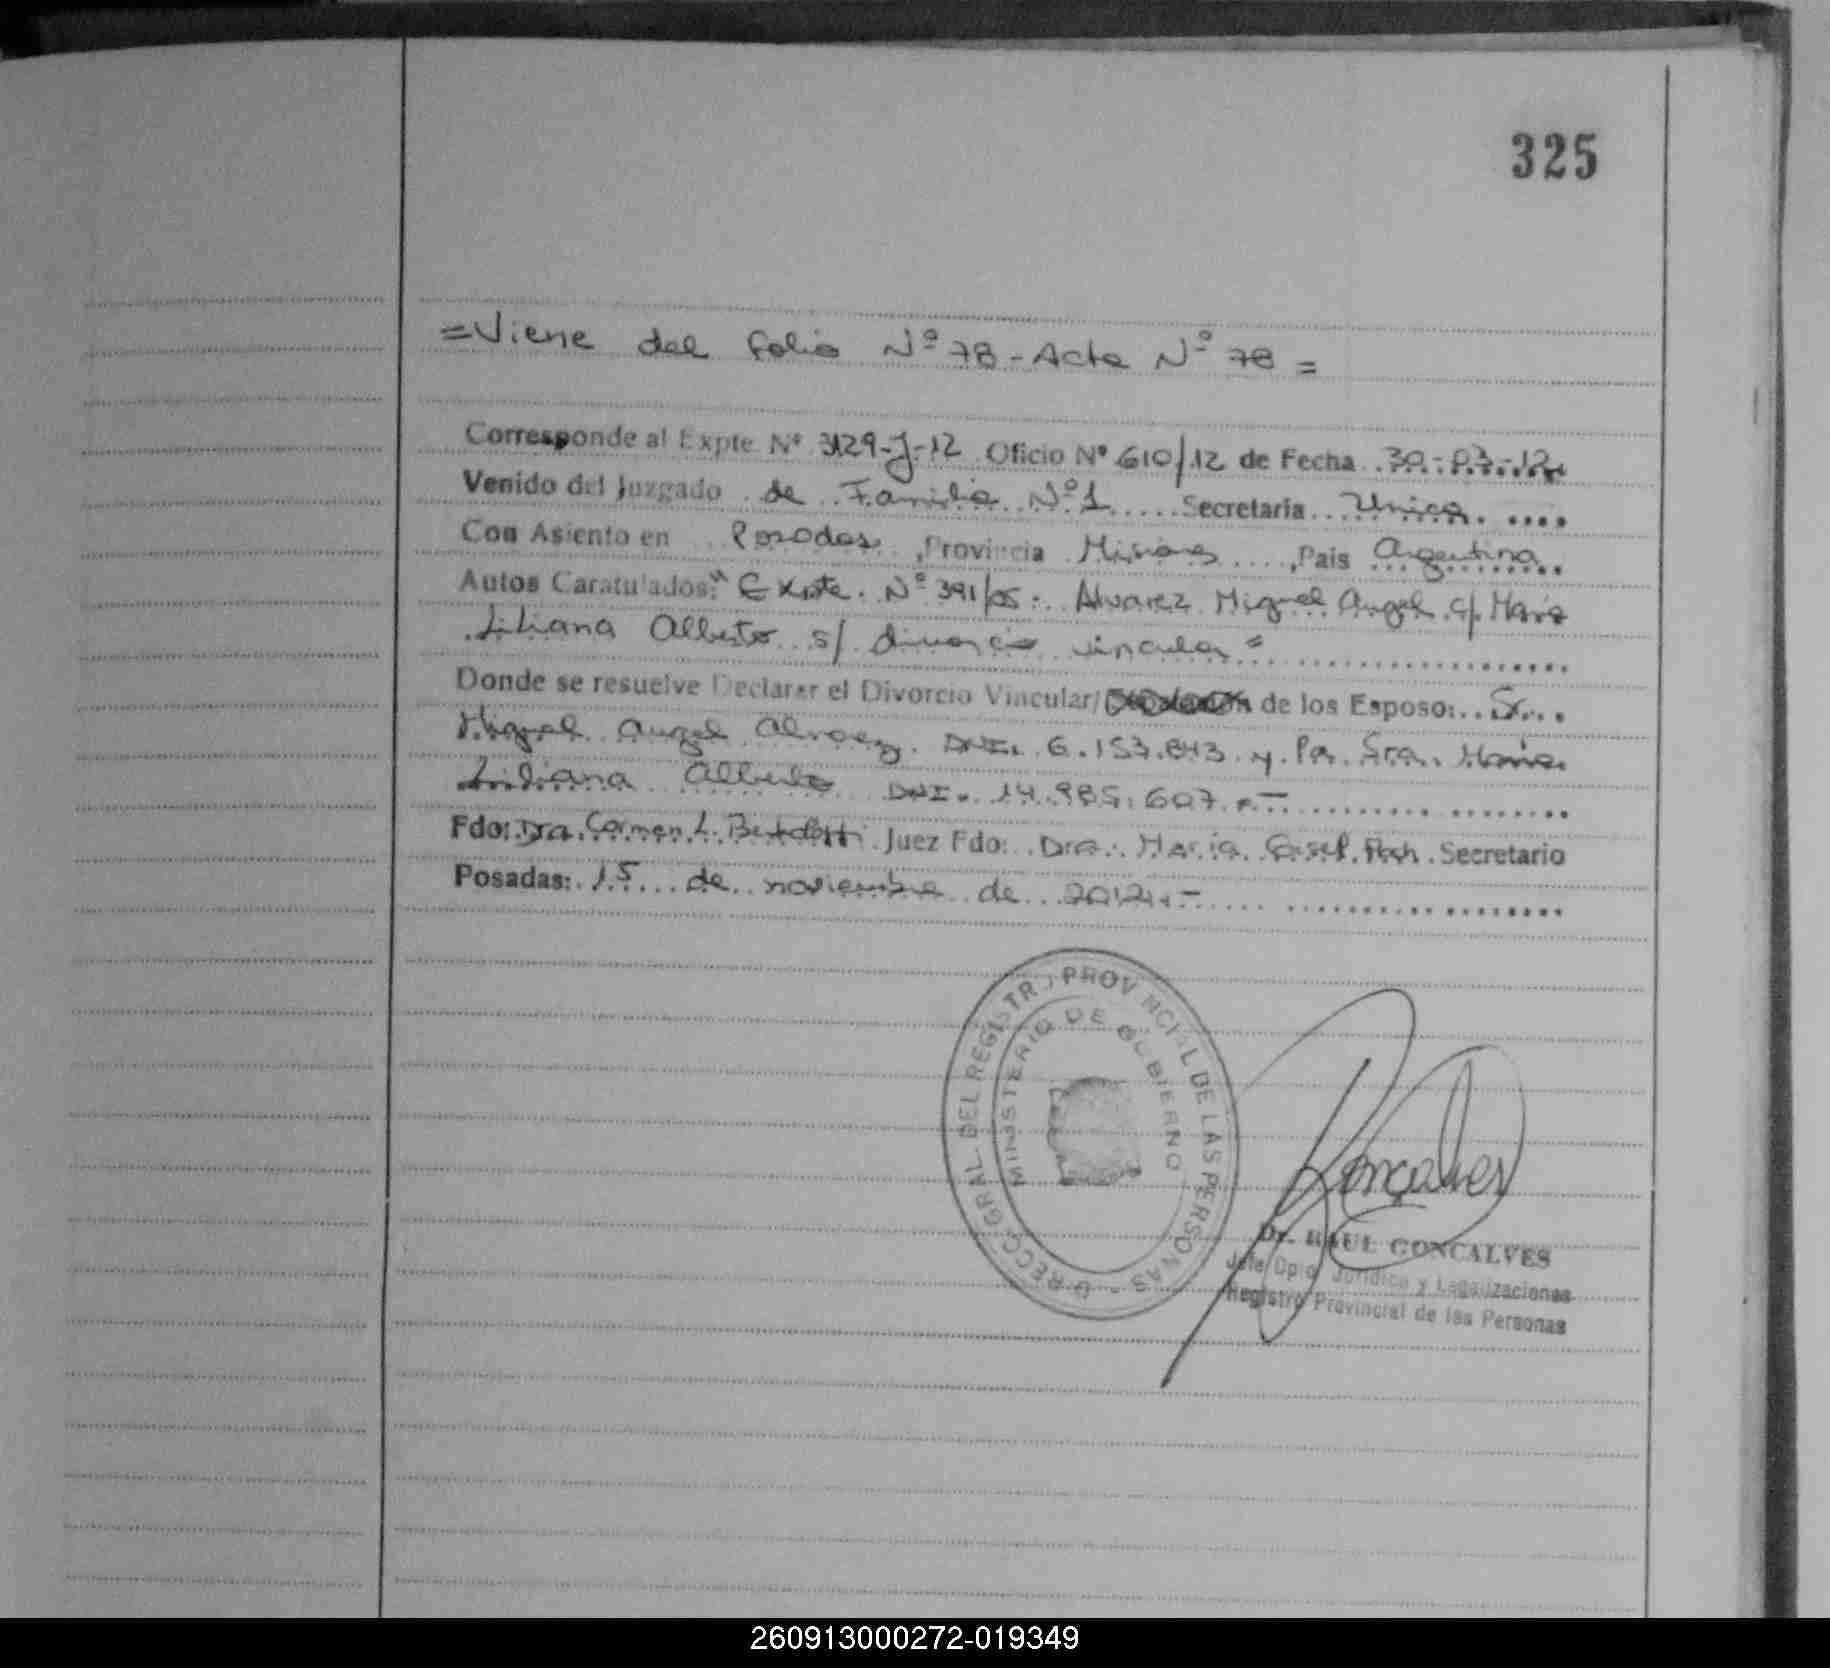 325
=Viene del folio Nº 78 - Acta Nº 78 =
Corresponde al Expte Nº 3129-J-12 Oficio Nº 610/12 de Fecha 30-03-12.
Venido del Juzgado de Familia Nº 1 Secretaria Unica
Con Asiento en Posadas, Provincia Misiones, Pais Argentina
Autos Caratulados: "Expte. Nº 391/05. Alvarez Miguel Angel c/ Maria
Liliana Alberto s/ divorcio vincular"
Donde se resuelve Declarar el Divorcio Vincular/ de los Esposo: Sr.
Miguel Angel Alvarez. DNI. 6.153.843 y la Sra. Maria
Liliana Alberto DNI. 14.985.607.-
Fdo: Dra. Carmen L. Juez Fdo: Dra. Maria Secretario
Posadas: 15 de noviembre de 2012.-
DIRECC. GRAL. DEL REGISTRO PROVINCIAL DE LAS PERSONAS -
MINISTERIO DE GOBIERNO
Goncalves
Dr. RAUL GONCALVES
Jefe Dpto. Juridico y Legalizaciones
Registro Provincial de las Personas
260913000272-019349